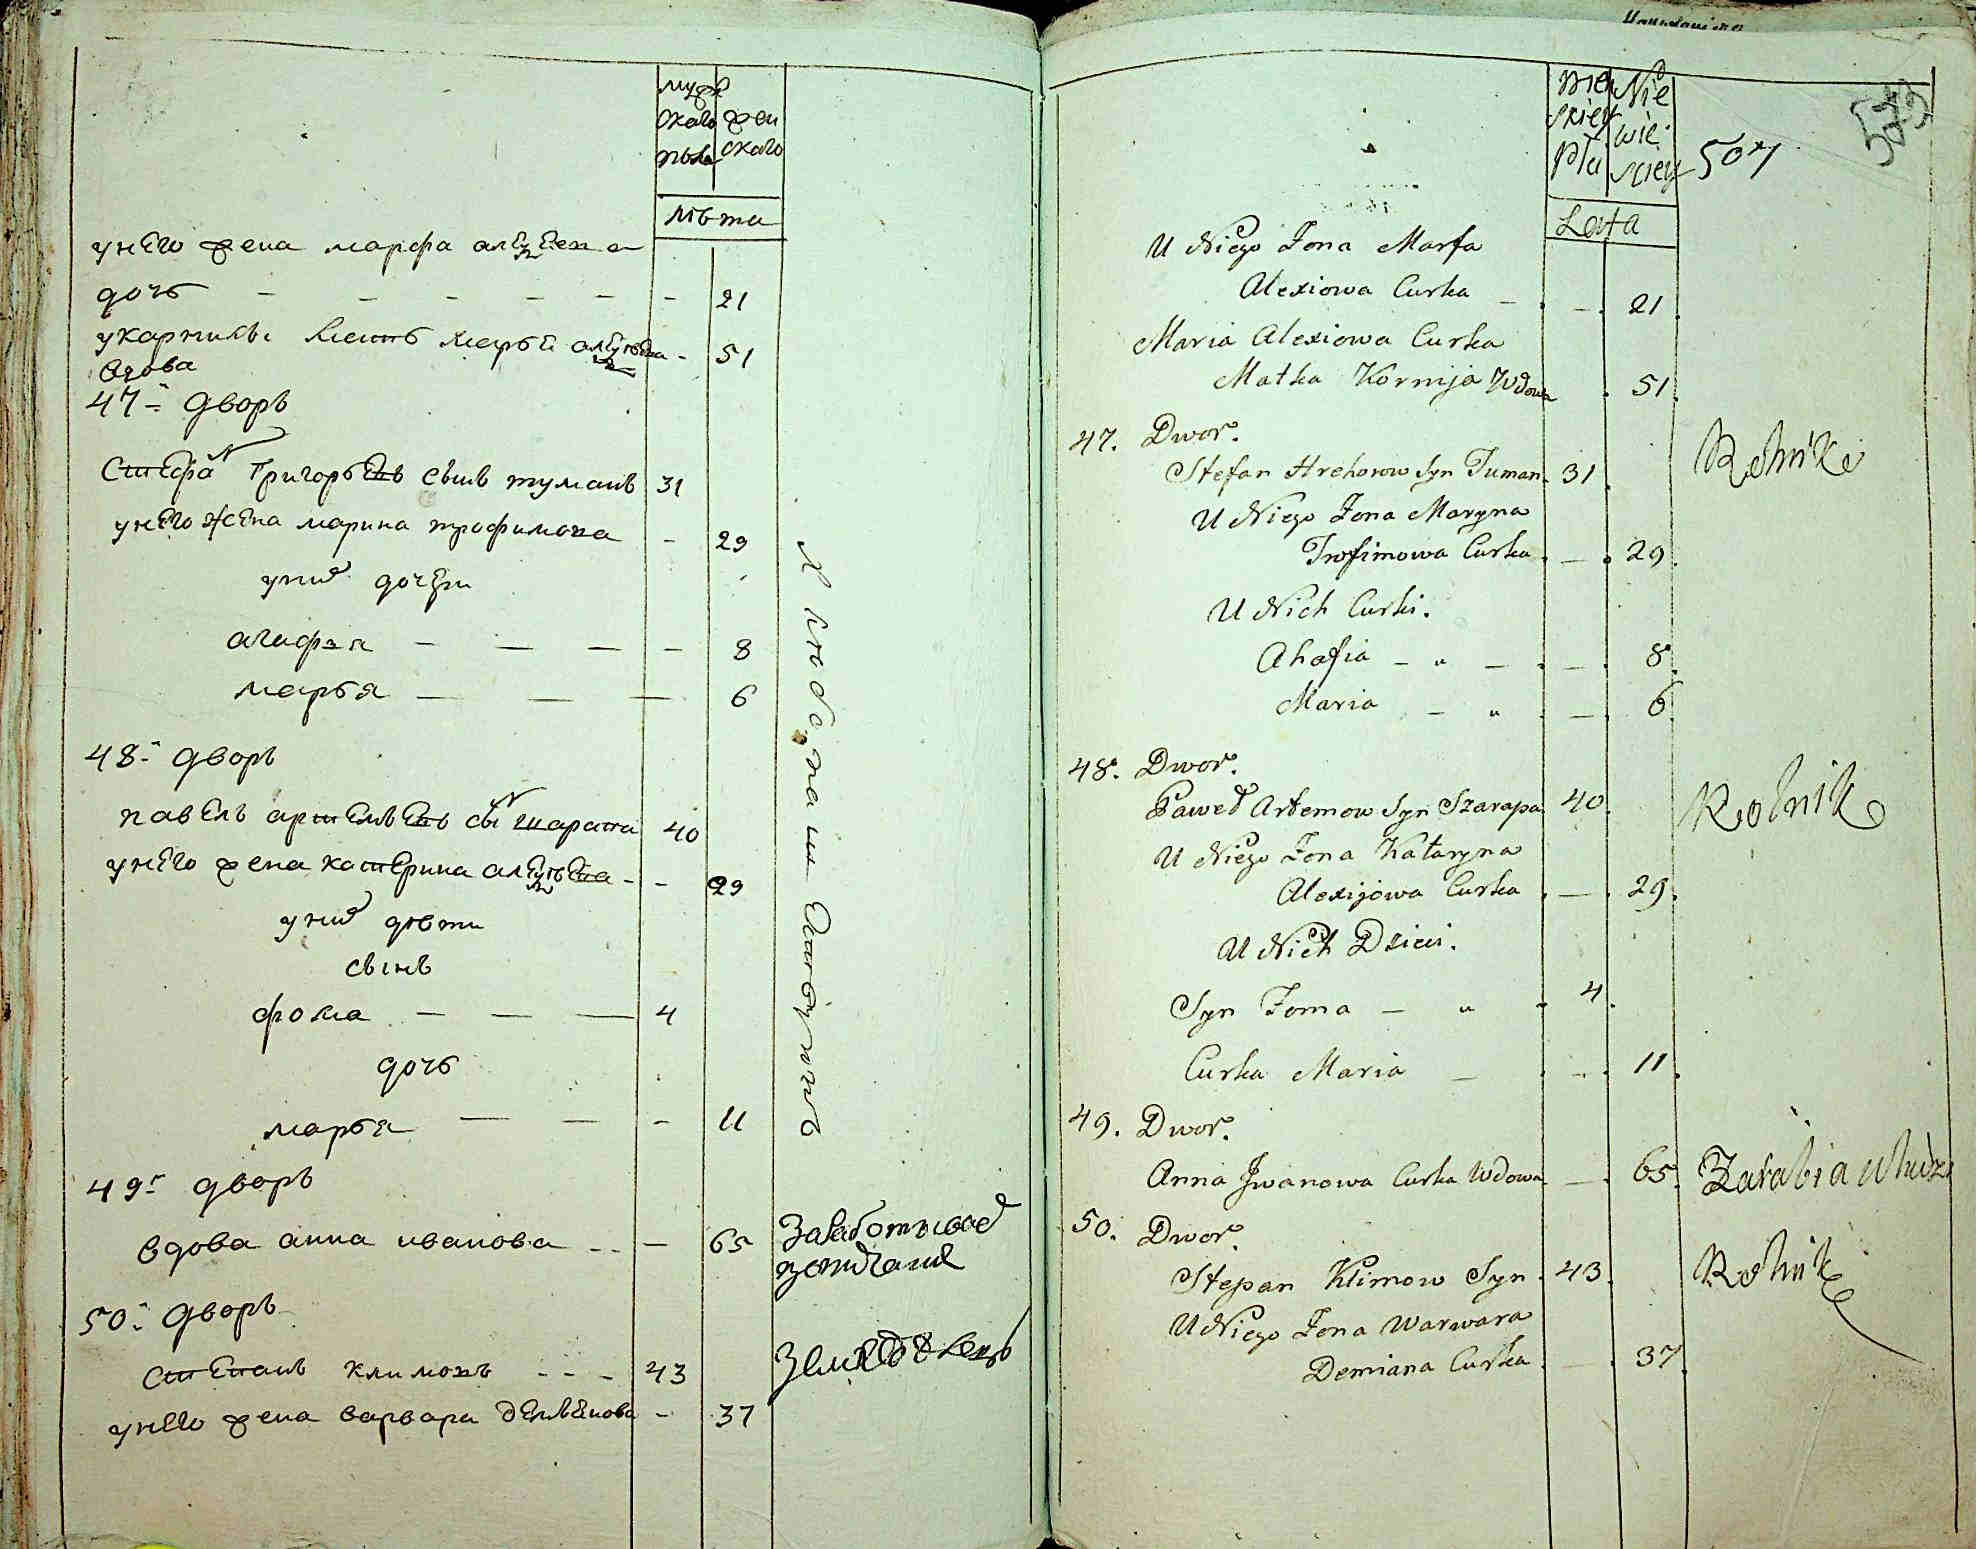 муж
скаго жен
пола скаго
лѣта
у него жена марфа алексеева
дочь 21
у карнилы мать марья алексеева 51
вдова
47- дворъ
Стефа Григорьевъ сынъ туманъ 31
у него жена марина трофимова 29
у них дочери
агафья 8
марья 6
48- дворъ
павелъ артемьевъ сы шарапа 40
у него жена катерина алексеева 29
у них дѣти
сынъ
фома 4
дочь
марья 11
49- дворъ
вдова анна иванова 65
50- дворъ
степанъ климовъ 43
у него жена варвара демьенова 37
хлебопашествуютъ
573
507
Męz Nie
skiey wie
płci sciey
Lata
U Niego Żona Marfa
Alexiowa Curka 21
Maria Alexiowa Curka
Matka Kornija Wdowa 51
47. Dwor.
Stefan Hrehorow Syn Tuman 31 Rolnik
U Niego Żona Maryna
Trofimowa Curka 29
U Nich Curki.
Ahafia 8
Maria 6
48. Dwor.
Paweł Artemow Syn Szarapa 40 Rolnik
U Niego Żona Kataryna
Alexijowa Curka 29
U Nich Dzieci.
Syn Foma 4
Curka Maria 11
49. Dwor.
Anna Jwanowa Curka Wdowa 65 Zarabia u ludzi
50. Dwor.
Stepan Klimow Syn 43 Rolnik
U Niego Żona Warwara
Demiana Curka 37